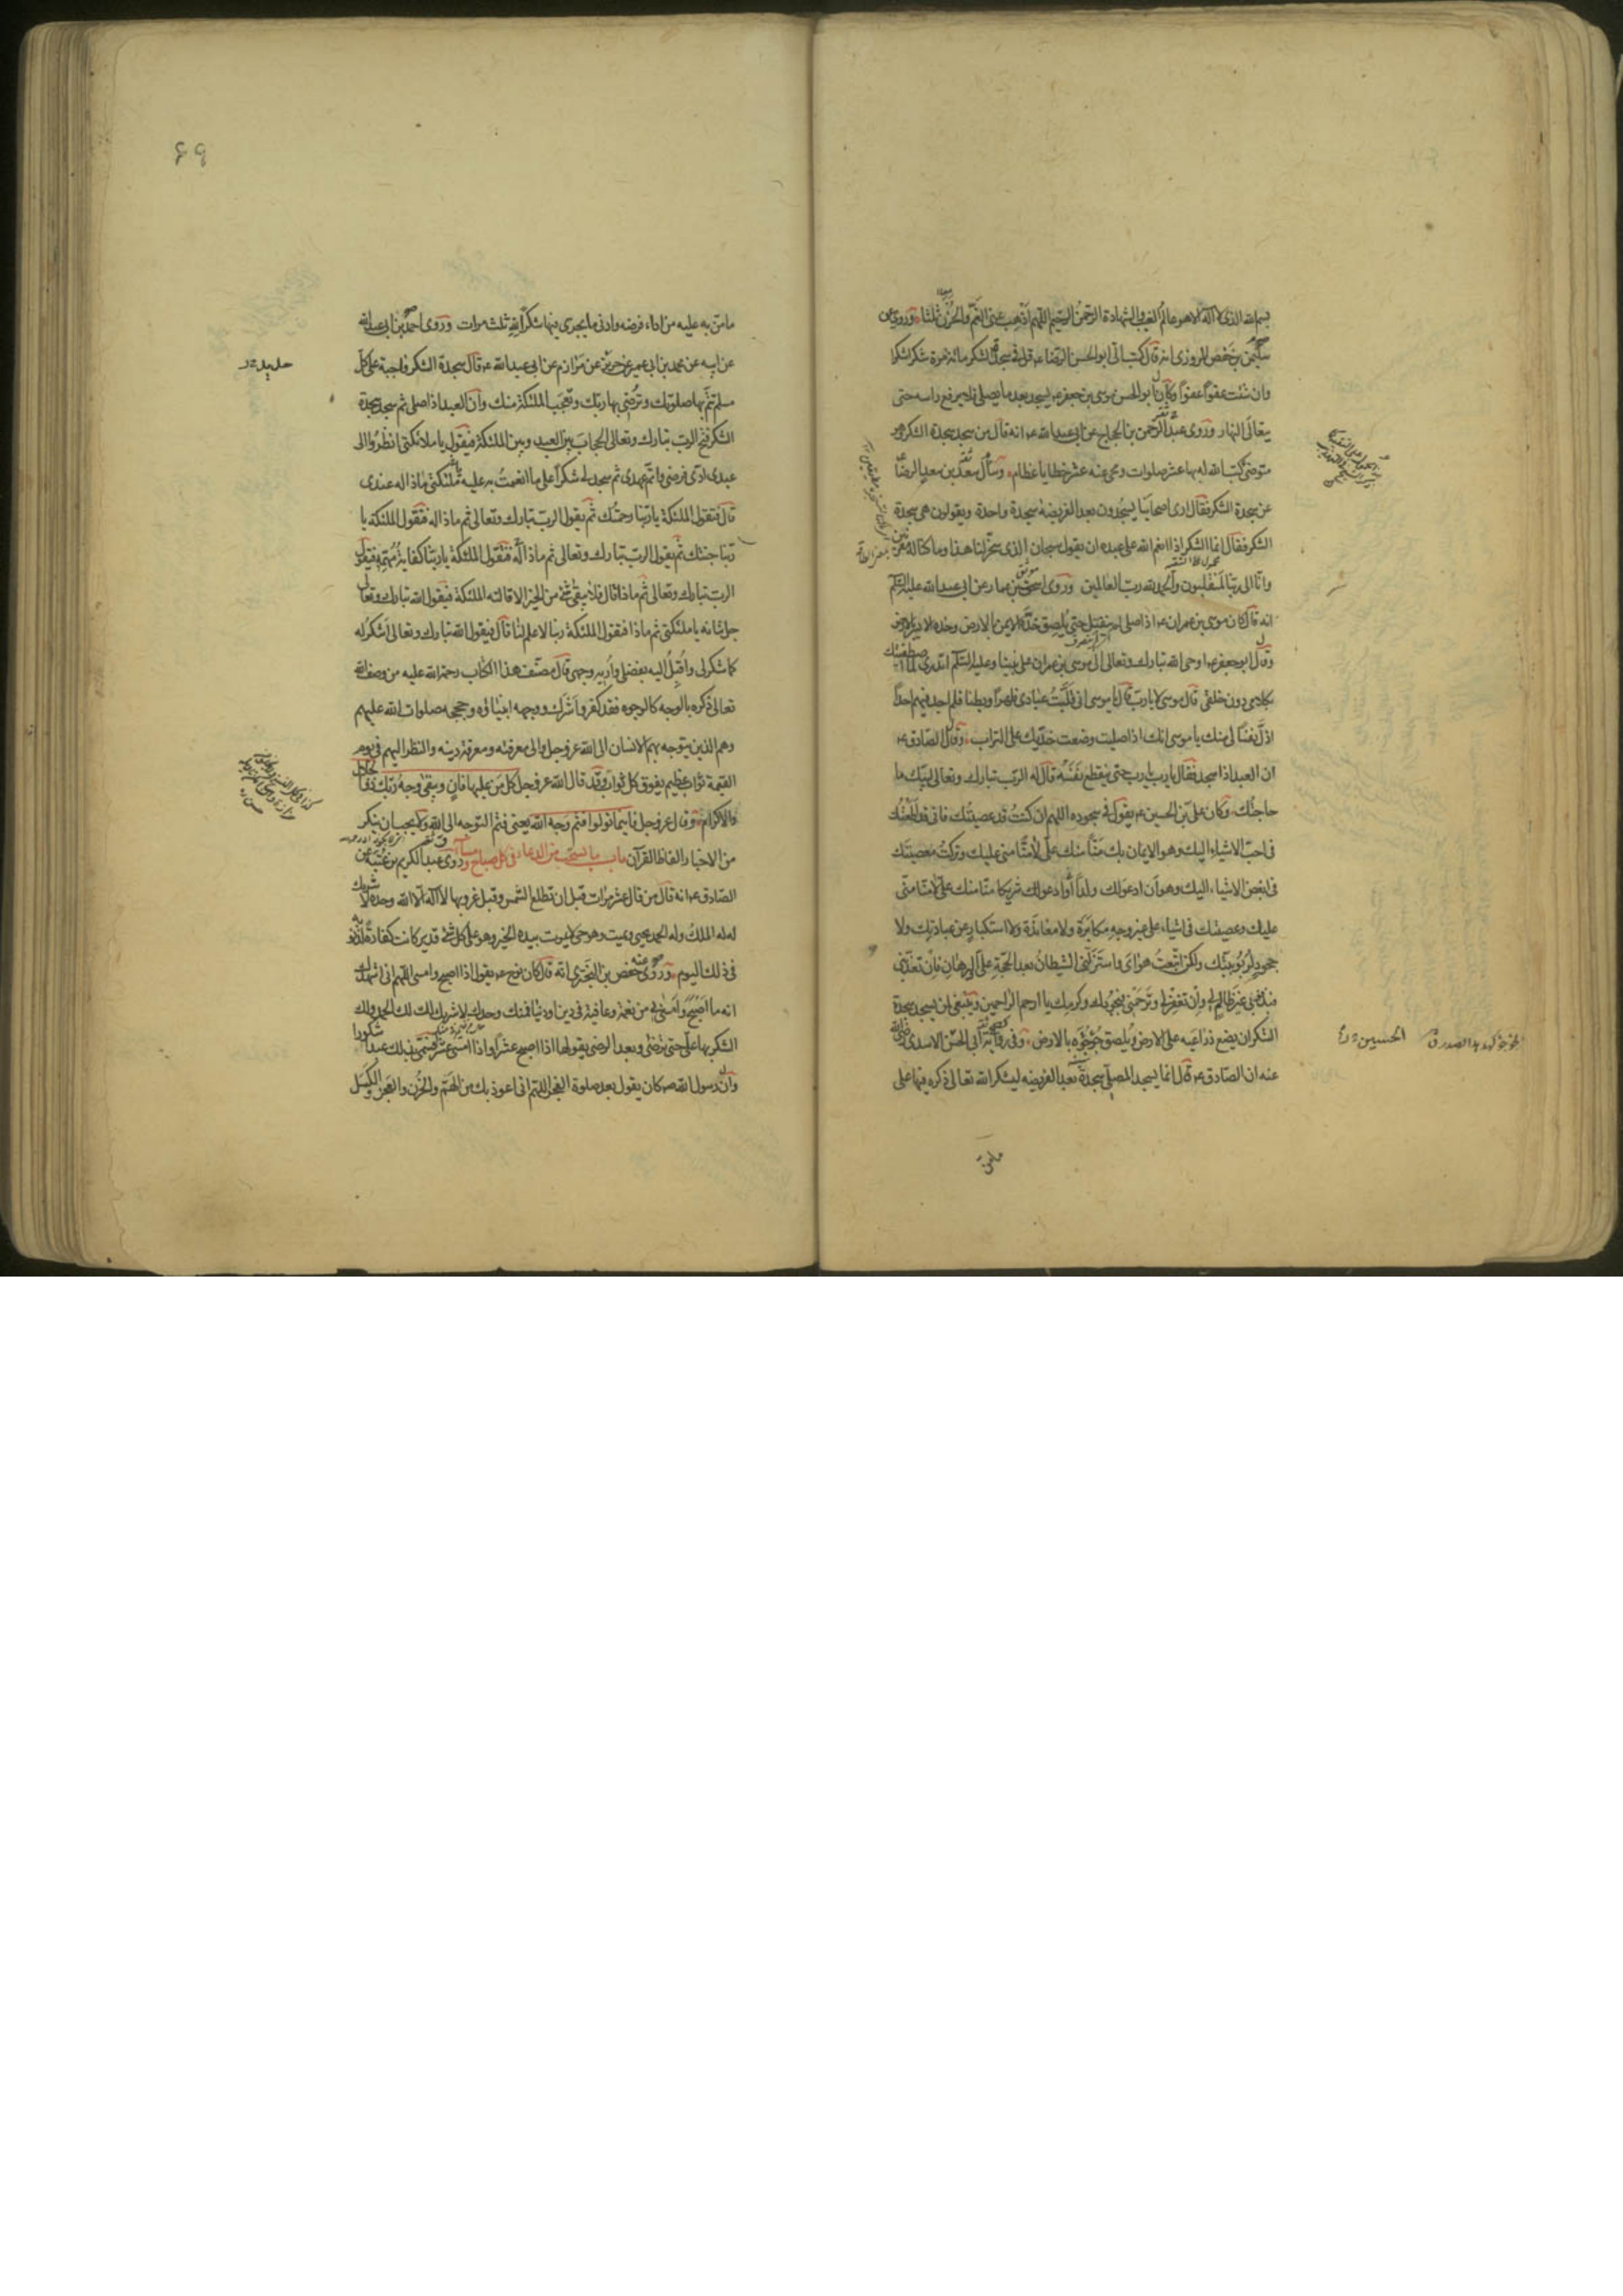 بسم الله الذى لا اله الا هو عالم الغيب والشهادة الرحمن الرحيم اللهم اذهب عنى الغم والحزن ثلثا وروى عن
سليمن بن حفص المروزى انه قال كتب الى ابو الحسن الرضا ع قل فى سجدة الشكر مائة مرة شكرا شكرا
وان شئت عفوا عفوا وكان ابو الحسن موسى بن جعفر ع يسجد بعد ما يصلى فلا يرفع راسه حتى
يتعالى النهار وروى عبد الرحمن بن الحجاج عن ابى عبد الله ع انه قال من سجد سجدة الشكر وهو
متوضئ كتب الله له بها عشر صلوات ومحى عنه عشر خطايا عظام وسأل سعد بن سعد الرضا ع
عن سجدة الشكر فقال ارى اصحابنا يسجدون بعد الفريضة سجدة واحدة ويقولون هى سجدة
الشكر فقال انما الشكر اذا انعم الله على عبده ان يقول سبحان الذى سخر لنا هذا وما كنا له مقرنين
وانا الى ربنا لمنقلبون والحمد لله رب العالمين وروى اسحق بن عمار عن ابى عبد الله عليه السلم
انه قال كان موسى بن عمران ع اذا صلى لم ينفتل حتى يلصق خده الايمن بالارض وخده الايسر بالارض
وقال ابو جعفر ع اوحى الله تبارك وتعالى الى موسى بن عمران على نبينا وعليه السلم اتدرى لما اصطفيتك
بكلامى دون خلقى قال موسى لا يا رب قال يا موسى انى قلبت عبادى ظهرا وبطنا فلم اجد فيهم احدا
اذل نفسا لى منك يا موسى انك اذا صليت وضعت خديك على التراب وقال الصادق ع
ان العبد اذا سجد فقال يا رب يا رب حتى ينقطع نفسه قال له الرب تبارك وتعالى لبيك ما
حاجتك وكان على بن الحسين ع يقول فى سجوده اللهم ان كنت قد عصيتك فانى قد اطعتك
فى احب الاشياء اليك وهو الايمان بك منا منك على لا منا منى عليك وتركت معصيتك
فى ابغض الاشياء اليك وهو ان ادعو لك ولدا او ادعو لك شريكا منا منك على لا منا منى
عليك وعصيتك فى اشياء على غير وجه مكابرة ولا معاندة ولا استكبار عن عبادتك ولا
جحود لربوبيتك ولكن اتبعت هواى واستزلنى الشيطان بعد الحجة على والبرهان فان تعذبنى
فبذنبى غير ظالم لى وان تغفر لى وترحمنى فبجودك وكرمك يا ارحم الراحمين وينبغى لمن يسجد سجدة
الشكر ان يضع ذراعيه على الارض ويلصق جؤجؤه بالارض وفى رواية ابى الحسين الاسدى رضى الله
عنه ان الصادق ع قال انما يسجد المصلى سجدة بعد الفريضه ليشكر الله تعالى ذكره فيها على
ما من به عليه من اداء فرضه وادنى ما يجرى فيها شكرا لله ثلث مرات وروى احمد بن ابى عبد الله
عن ابيه عن محمد بن ابى عمير عن حريز عن مرازم عن ابى عبد الله ع قال سجدة الشكر واجبة على كل
مسلم تتم بها صلوتك وترضى بها ربك وتعجب الملئكة منك وان العبد اذا صلى ثم سجد سجدة
الشكر فتح الرب تبارك وتعالى الحجاب بين العبد وبين الملئكة فيقول يا ملائكتى انظروا الى
عبدى ادى فرضى واتم عهدى ثم سجد لى شكرا على ما انعمت به عليه ملئكتى ماذا له عندى
قال فتقول الملئكة يا ربنا رحمتك ثم يقول الرب تبارك وتعالى ثم ماذا له فتقول الملئكة يا
ربنا جنتك ثم يقول الرب تبارك وتعالى ثم ماذا له فتقول الملئكة يا ربنا كفاية مهمه فيقول
الرب تبارك وتعالى ثم ماذا قال فلا يبقى شئ من الخير الا قالته الملئكة فيقول الله تبارك وتعالى
جل ثنائه يا ملئكتى ثم ماذا فتقول الملئكة ربنا لا علم لنا قال فيقول الله تبارك وتعالى اشكر له
كما شكر لى واقبل اليه بفضلى واريه وجهى قال مصنف هذا الكتاب رحمة الله عليه من وصف الله
تعالى ذكره بالوجه كالوجوه فقد كفر واشرك ووجهه انبياؤه وحججه صلوات الله عليهم
وهم الذين يتوجه بهم الانسان الى الله عز وجل والى معرفته ومعرفة دينه والنظر اليهم فى يوم
القيمة ثواب عظيم يفوق كل ثواب وقد قال الله عز وجل كل من عليها فان ويبقى وجه ربك ذو الجلال
والاكرام وقال عز وجل فاينما تولوا فثم وجه الله يعنى فثم التوجه الى الله ولا يجب ان ينكر
من الاخبار الفاظ القرآن باب ما يستحب من الدعاء فى كل صباح ومساء روى عبد الكريم بن عتبة عن
الصادق ع انه قال من قال عشر مرات قبل ان تطلع الشمس وقبل غروبها لا اله الا الله وحده لا شريك
له له الملك وله الحمد يحيى ويميت وهو حى لا يموت بيده الخير وهو على كل شئ قدير كانت كفارة لذنوبه
فى ذلك اليوم وروى عنه حفص بن البخترى انه قال كان نوح ع يقول اذا اصبح وامسى اللهم انى اشهدك
انه ما اصبح وامسى بى من نعمة وعافية فى دين او دنيا فمنك وحدك لا شريك لك لك الحمد ولك
الشكر بها على حتى ترضى وبعد الرضى يقولها اذا اصبح عشرا واذا امسى عشرا فسمى بذلك عبدا شكورا
وان رسول الله ص كان يقول بعد صلوة الفجر اللهم انى اعوذ بك من الهم والحزن والعجز والكسل